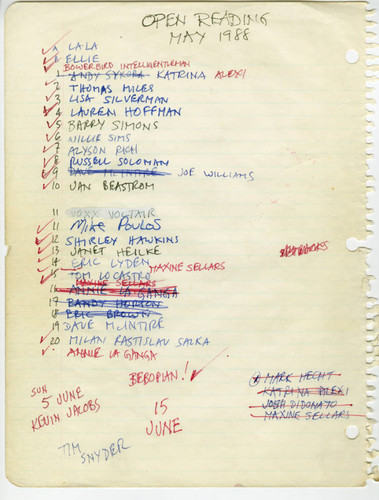 OPEN READING
MAY 1988
LA-LA
ELLIE
BOWERBIRD INTELLIGENTLEMAN
1 ANDY SYKORA KATRINA ALEXI
2 THOMAS MILES
3 LISA SILVERMAN
4 LAUREN HOFFMAN
5 BARRY SIMONS
6 WILLIE SIMS
7 ALYSON RICH
8 RUSSELL SOLOMAN
9 DAVE MCINTIRE JOE WILLIAMS
10 JAN BEASTROM
11 VOXX VOLTAIR
11 MIKE POULOS
12 SHIRLEY HAWKINS
13 JANET HEILKE
14 ERIC LYDEN MAXINE SELLARS
15 TOM LOCASTRO
MAXINE SELLARS
16 ANNIE LA GANGA
17 RANDY HORTON
18 ERIC BROWN
19 DAVE MCINTIRE
20 MILAN RASTISLAV SALKA
ANNIE LA GANGA
BEBOPIAN!
MARK HECHT
KATRINA ALEXI
JOSH DIDONATO
MAXINE SELLARS
SUN
5 JUNE
KEVIN JACOBS
15
JUNE
TIM
SNYDER